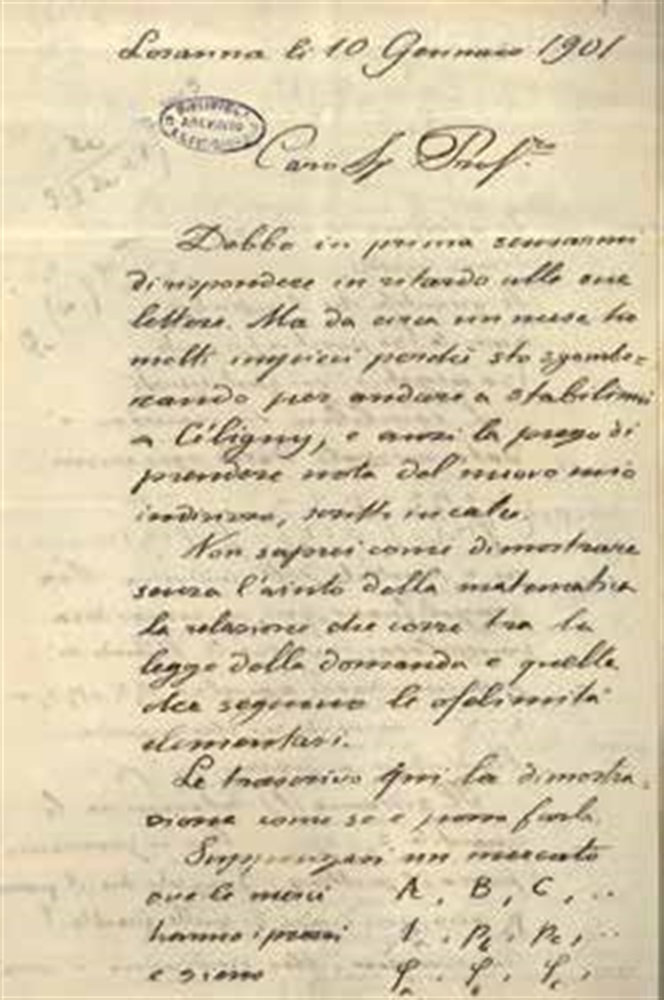 Losanna li 10 Gennaio 1901
Caro Sg Prof.re
Debbo in prima scusarmi
di rispondere in ritardo alle sue
lettere. Ma da circa un mese ho
molti impicci perché sto sgombe=
rando per andare a stabilirmi
a Céligny, e anzi la prego di
prendere nota del nuovo mio
indirizzo, scritto in calce.
Non saprei come dimostrare
senza l'aiuto della matematica
la relazione che corre tra la
legge della domanda e quelle
che seguono le ofelimità
elementari.
Le trascrivo qui la dimostra=
zione come se e possa farla.
Suppongasi un mercato
ove le merci A, B, C, ..
hanno i prezzi 1, pb, pc, ..
e sieno φa, φb, φc,